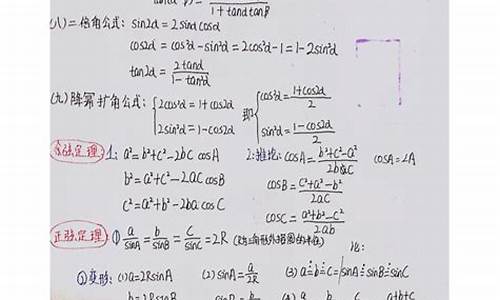 1+tanαtanβ
(八) 二倍角公式: sin2α = 2sinα cosα
cos2α = cos²α-sin²α = 2cos²α-1 = 1-2sin²α
tan2α = 2tanα / 1-tan²α
(九) 降幂扩角公式: { 2cos²α = 1+cos2α 即 { cos²α = 1+cos2α / 2
2sin²α = 1-cos2α sin²α = 1-cos2α / 2
余弦定理: 1. a²=b²+c²-2bc cosA 2.推论: cosA = b²+c²-a² / 2bc
b² = a²+c²-2ac cosB cosB = c²+a²-b² / 2ac
c² = a²+b²-2ba cosC cosC = a²+b²-c² / 2ab
正弦定理: ① a/sinA = b/sinB = c/sinC = 2R
② 变形: (1) a=2RsinA (2) sinA = a/2R (3) a:b:c = sinA:sinB:sinC